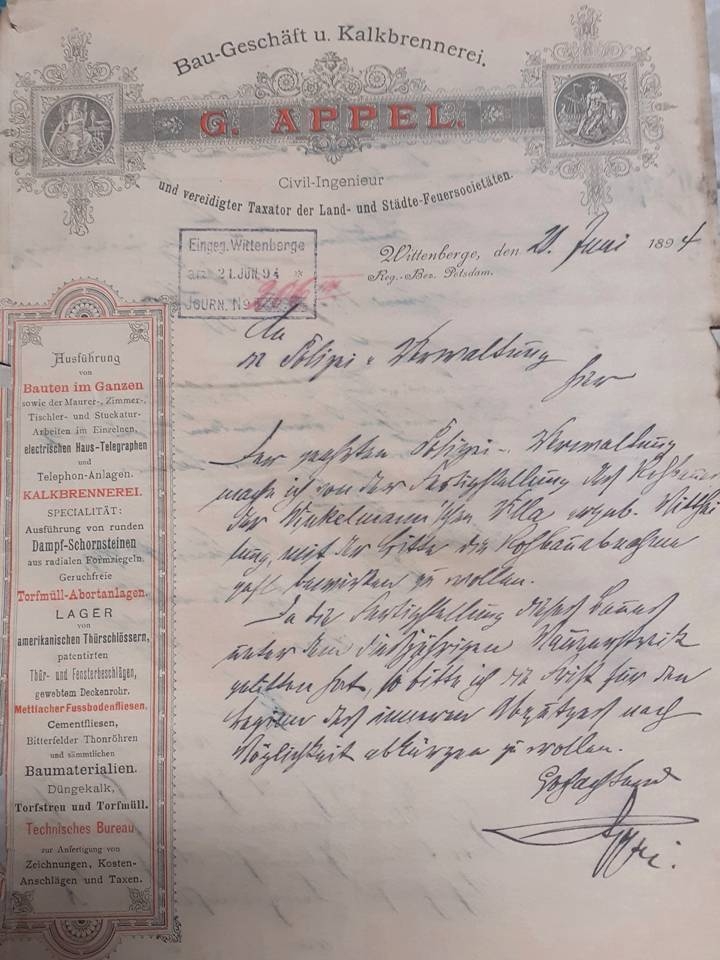 Bau-Geschäft u. Kalkbrennerei.
G. APPEL.
Civil-Ingenieur
und vereidigter Taxator der Land- und Städte-Feuersocietäten.
Wittenberge, den 20. Juni 1894
Reg.-Bez. Potsdam.
Eingeg. Wittenberge
am 21. JUN. 94 *
JOURN. No
An
die Polizei-Verwaltung
hier
Der geehrten Polizei-Verwaltung
mache ich von der Fertigstellung des Rohbaues
der Winkelmann'schen Villa ergeb. Mitthei
lung, mit der Bitte die Rohbauabnahme
gefl. bewirken zu wollen.
Da die Fertigstellung dieses Baues
unter dem diesjährigen Maurerstreik
gelitten hat, so bitte ich die Frist für den
Beginn des inneren Abputzes nach
Möglichkeit abkürzen zu wollen.
Hochachtend
Appel.
Ausführung
von
Bauten im Ganzen
sowie der Maurer-, Zimmer-,
Tischler- und Stuckatur-
Arbeiten im Einzelnen,
electrischen Haus-Telegraphen
und
Telephon-Anlagen.
KALKBRENNEREI.
SPECIALITÄT:
Ausführung von runden
Dampf-Schornsteinen
aus radialen Formziegeln.
Geruchfreie
Torfmüll-Abortanlagen.
LAGER
von
amerikanischen Thürschlössern,
patentirten
Thür- und Fensterbeschlägen,
gewebtem Deckenrohr.
Mettlacher Fussbodenfliesen,
Cementfliesen,
Bitterfelder Thonröhren
und sämmtlichen
Baumaterialien.
Düngekalk,
Torfstreu und Torfmüll.
Technisches Bureau
zur Anfertigung von
Zeichnungen, Kosten-
Anschlägen und Taxen.